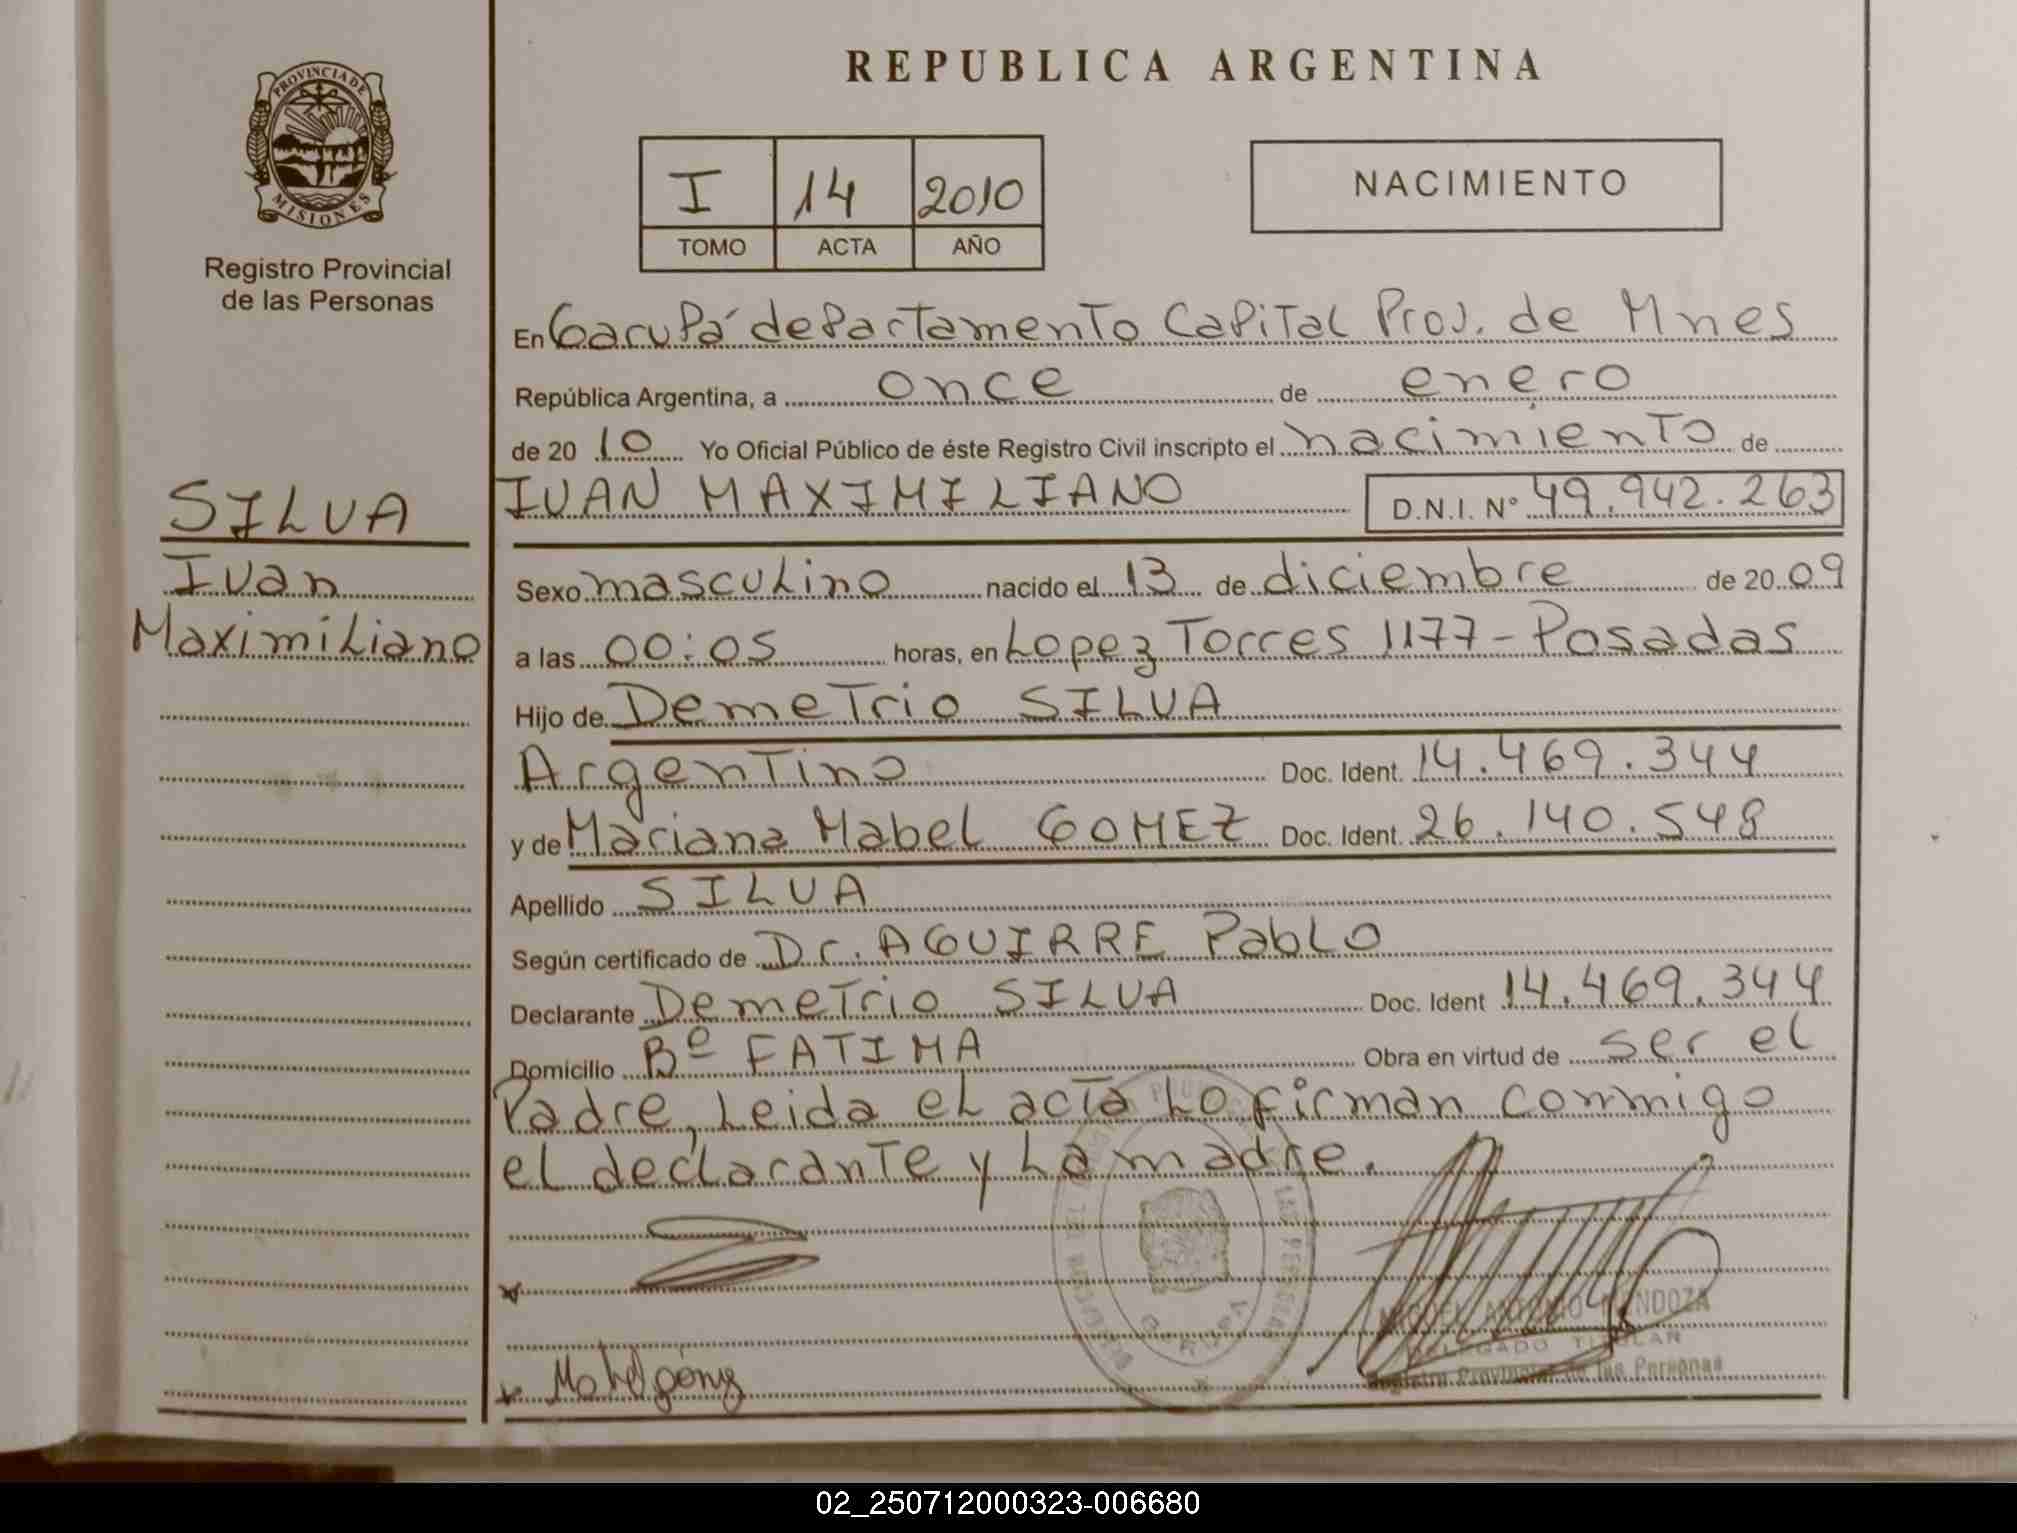 REPUBLICA ARGENTINA
PROVINCIA DE MISIONES
Registro Provincial
de las Personas
I 14 2010
TOMO ACTA AÑO
NACIMIENTO
En Garupá departamento Capital Prov. de Mnes
República Argentina, a once de enero
de 20 10 Yo Oficial Público de éste Registro Civil inscripto el nacimiento de
IVAN MAXIMILIANO D.N.I. N° 49.942.263
SILVA
Ivan
Maximiliano
Sexo masculino nacido el 13 de diciembre de 20 09
a las 00:05 horas, en Lopez Torres 1177 - Posadas
Hijo de Demetrio SILVA
Argentino Doc. Ident. 14.469.344
y de Mariana Mabel GOMEZ Doc. Ident. 26.140.548
Apellido SILVA
Según certificado de Dr. AGUIRRE Pablo
Declarante Demetrio SILVA Doc. Ident 14.469.344
Domicilio Bº FATIMA Obra en virtud de ser el
Padre, Leida el acta Lo firman conmigo
el declarante y La madre.
MIGUEL ANTONIO MENDOZA
DELEGADO TITULAR
Registro Provincial de las Personas
02_250712000323-006680